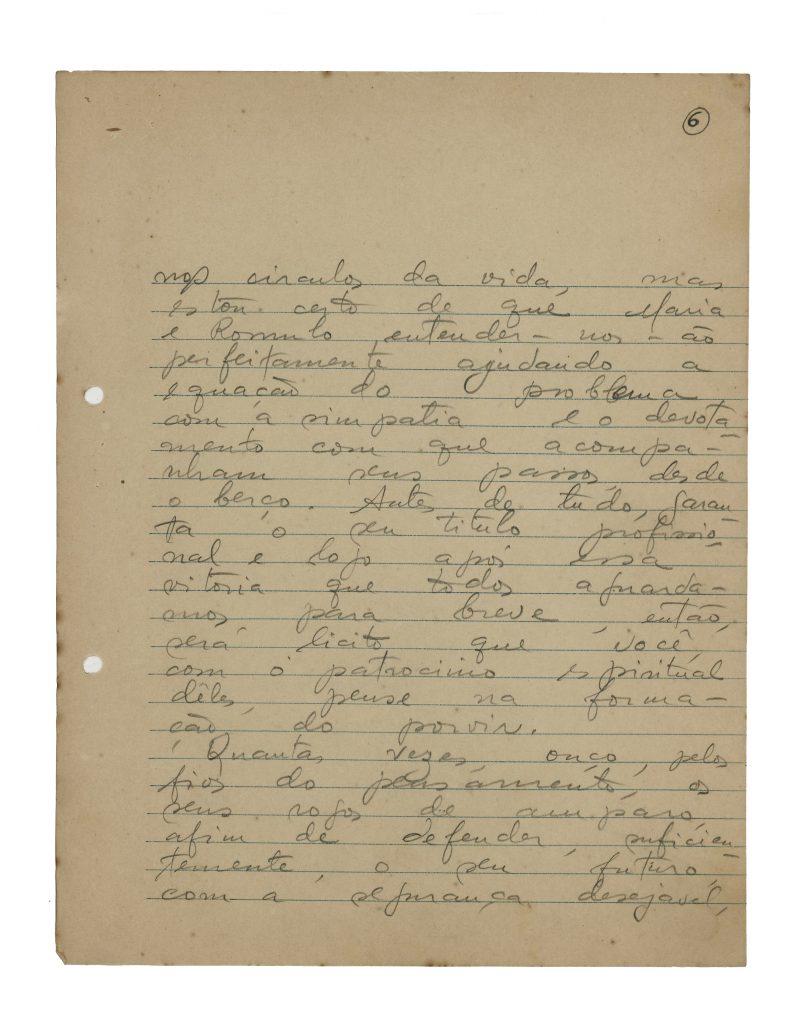 6
nos circulos da vida, mas
estou certo de que Maria
e Romulo entender-nos-ão
perfeitamente ajudando a
equação do problema
com a simpatia e o devota
mento com que acompa-
nham seus passos, desde
o berço. Antes de tudo, garan-
ta o seu titulo profissio-
nal e logo após essa
vitória que todos aguarda-
mos para breve, então,
será licito que você,
com o patrocinio espiritual
dêles, pense na forma-
ção do porvir.
Quantas vezes, ouço, pelos
fios do pensamento, os
seus rogos de amparo,
afim de defender, suficien-
temente, o seu futuro,
com a segurança desejavel,